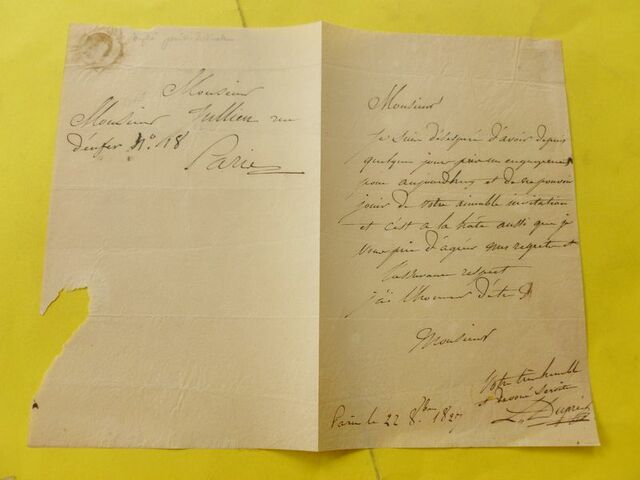 Monsieur
Monsieur Jullien rue
d'enfer N.º 18
Paris
Monsieur
Je suis désespéré d'avoir depuis
quelque jour pris un engagement
pour aujourdhuy et de ne pouvoir
jouir de votre aimable invitation
et c'est a la hâte aussi que je
vous prie d'agréer mes regrets et
respect
j'ai l'honneur d'être
Monsieur
Votre très humble
et dévoué Servite
L. Dupré
Paris le 22 8.bre 1827